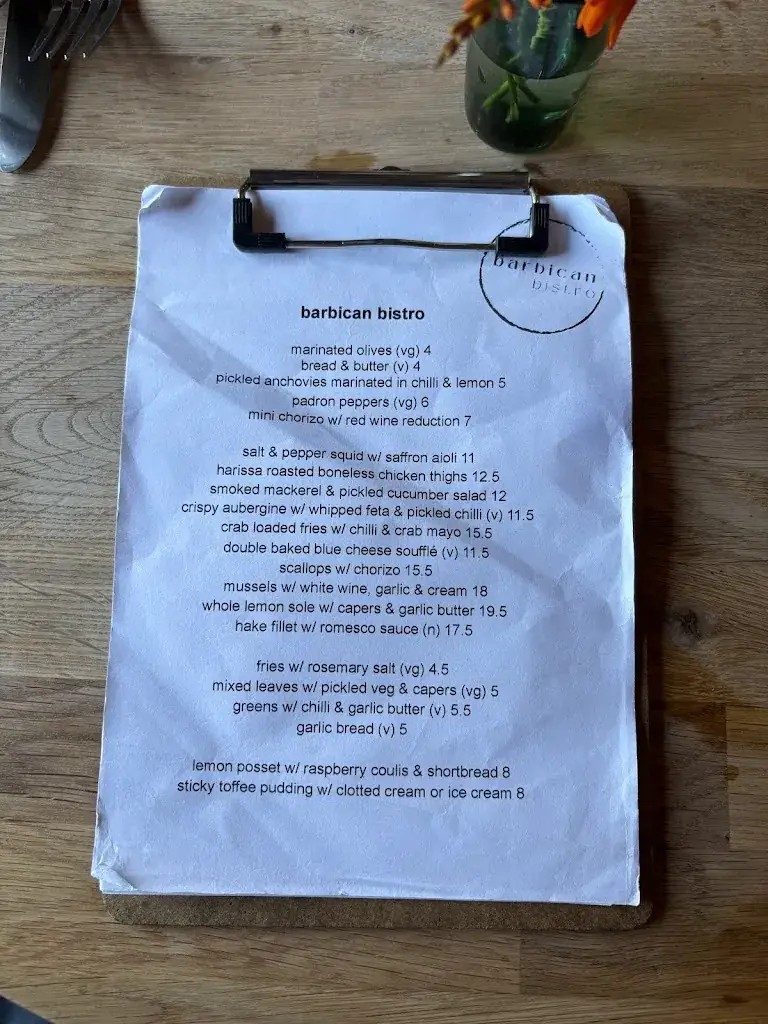 barbican
bistro
barbican bistro
marinated olives (vg) 4
bread & butter (v) 4
pickled anchovies marinated in chilli & lemon 5
padron peppers (vg) 6
mini chorizo w/ red wine reduction 7
salt & pepper squid w/ saffron aioli 11
harissa roasted boneless chicken thighs 12.5
smoked mackerel & pickled cucumber salad 12
crispy aubergine w/ whipped feta & pickled chilli (v) 11.5
crab loaded fries w/ chilli & crab mayo 15.5
double baked blue cheese soufflé (v) 11.5
scallops w/ chorizo 15.5
mussels w/ white wine, garlic & cream 18
whole lemon sole w/ capers & garlic butter 19.5
hake fillet w/ romesco sauce (n) 17.5
fries w/ rosemary salt (vg) 4.5
mixed leaves w/ pickled veg & capers (vg) 5
greens w/ chilli & garlic butter (v) 5.5
garlic bread (v) 5
lemon posset w/ raspberry coulis & shortbread 8
sticky toffee pudding w/ clotted cream or ice cream 8